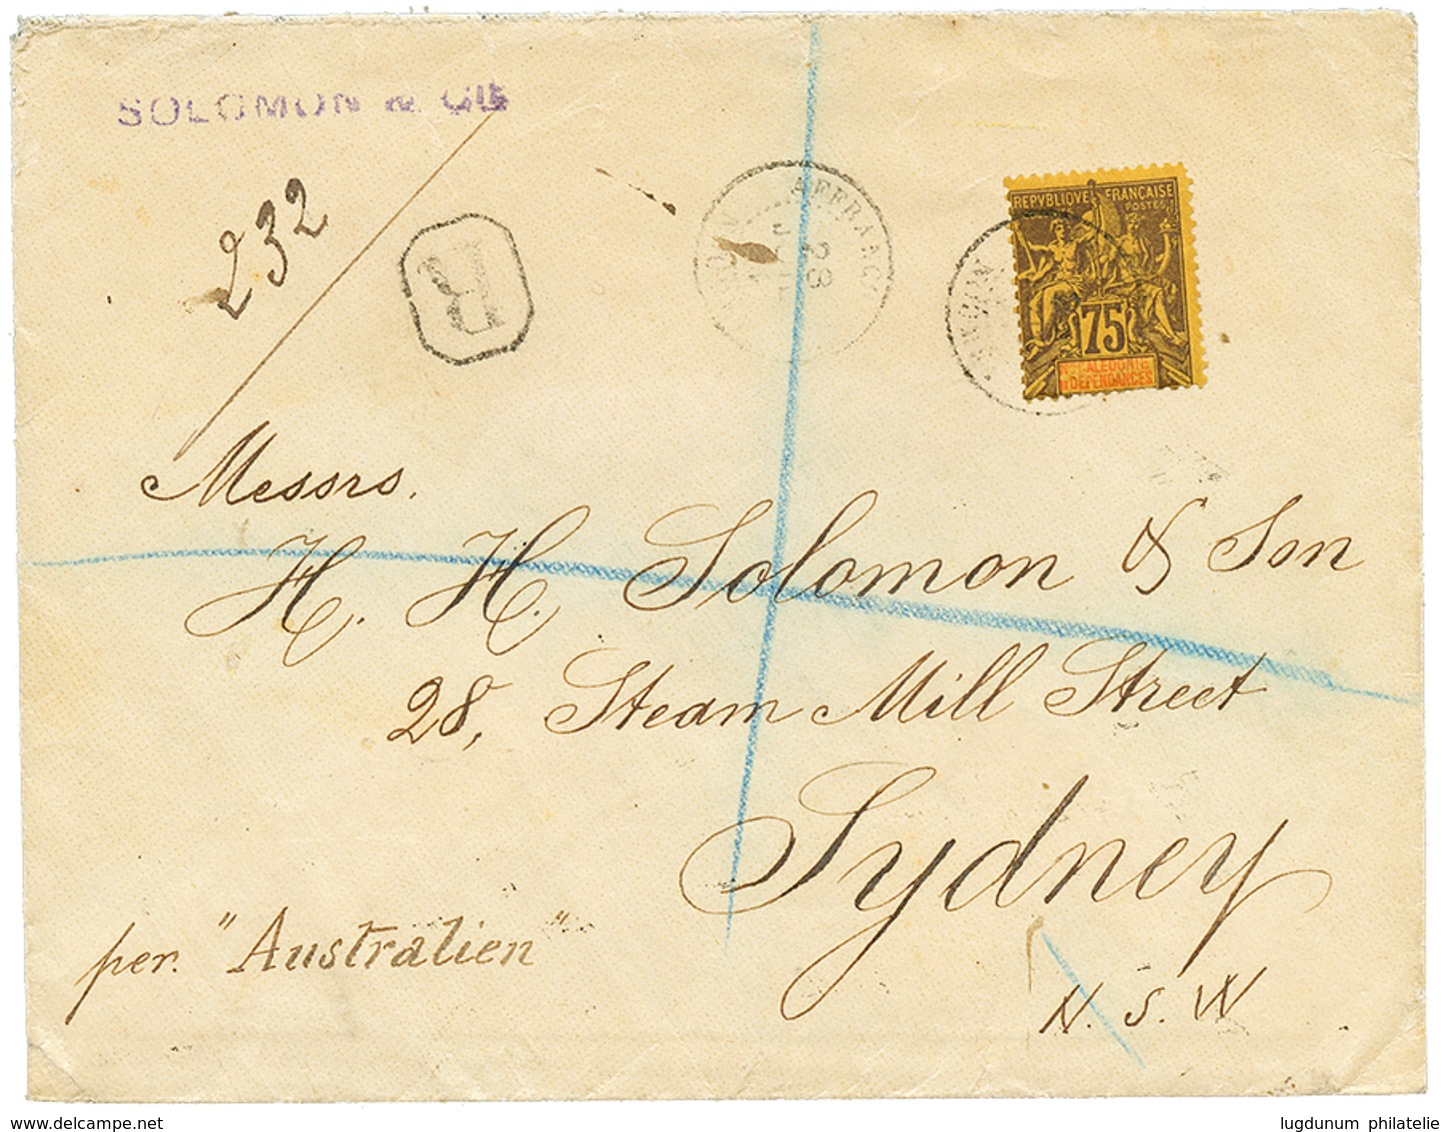 SOLOMON & CIE
232
R
AFFRANC
23
REPVBLIQVE FRANÇAISE
POSTES
75
CALEDONIE
DEPENDANCES
Messrs.
H. H. Solomon & Son
28, Steam Mill Street
Sydney
N. S. W
per. "Australien"
www.delcampe.net
lugdunum philatelie